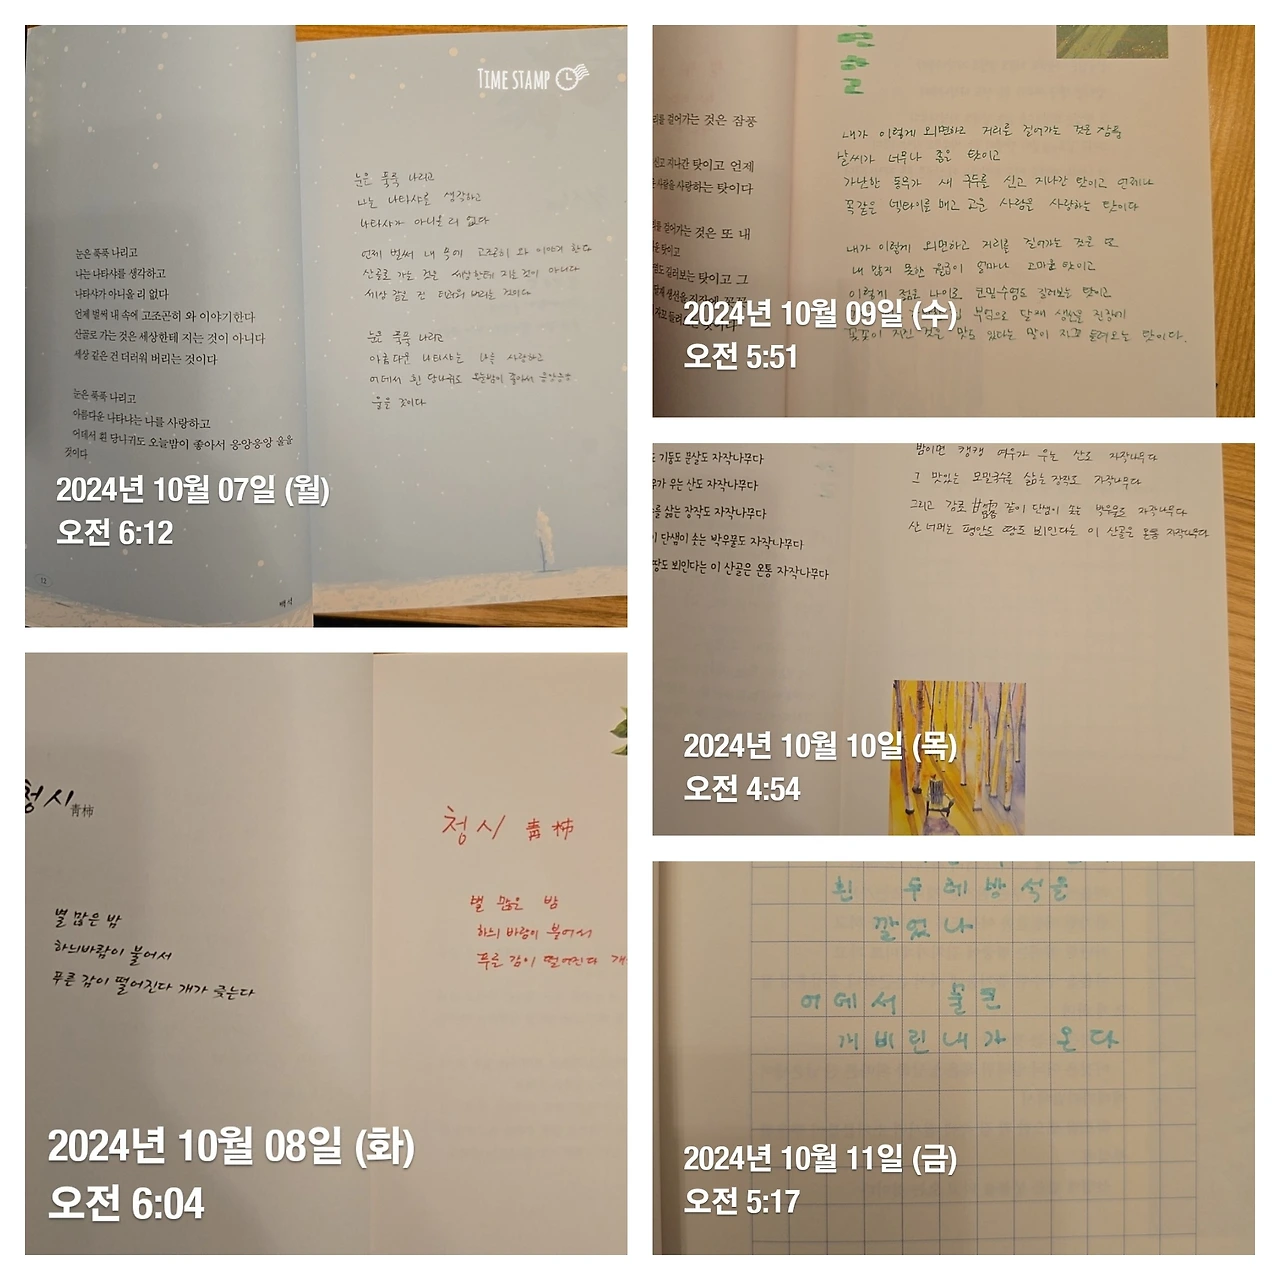 TIME STAMP
눈은 푹푹 나리고
나는 나타샤를 생각하고
나타샤가 아니올 리 없다
언제 벌써 내 속에 고조곤히 와 이야기한다
산골로 가는 것은 세상한테 지는 것이 아니다
세상 같은 건 더러워 버리는 것이다
눈은 푹푹 나리고
아름다운 나타나는 나를 사랑하고
어데서 흰 당나귀도 오늘밤이 좋아서 응앙응앙 울을
것이다
12
백석
눈은 푹푹 나리고
나는 나타샤를 생각하고
나타샤가 아니올 리 없다
언제 벌써 내 속에 고조곤히 와 이야기 한다
산골로 가는 것은 세상한테 지는 것이 아니다
세상 같은 건 더러워 버리는 것이다
눈은 푹푹 나리고
아름다운 나타샤는 나를 사랑하고
어데서 흰 당나귀도 오늘밤이 좋아서 응앙응앙
울을 것이다
2024년 10월 07일 (월)
오전 6:12
청시 青柿
별 많은 밤
하늬바람이 불어서
푸른 감이 떨어진다 개가 즞는다
청시 靑柿
별 많은 밤
하늬 바람이 불어서
푸른 감이 떨어진다 개
2024년 10월 08일 (화)
오전 6:04
면하고
리를 걸어가는 것은 잠풍
신고 지나간 탓이고 언제
사람을 사랑하는 탓이다
를 걸어가는 것은 또 내
탓이고
길러보는 탓이고 그
내가 이렇게 외면하고 거리를 걸어가는 것은 잠풍
날씨가 너무나 좋은 탓이고
가난한 동무가 새 구두를 신고 지나간 탓이고 언제나
꼭같은 넥타이를 매고 고운 사람을 사랑하는 탓이다
내가 이렇게 외면하고 거리를 걸어가는 것은 또
내 많지 못한 월급이 얼마나 고마운 탓이고
이렇게 젊은 나이로 코밑수염도 길러보는 탓이고
부엌으로 달재 생선을 진장에
꼿꼿이 지진 것은 맛도 있다는 말이 자꼬 들려오는 탓이다.
2024년 10월 09일 (수)
오전 5:51
기둥도 문살도 자작나무다
우가 우는 산도 자작나무다
를 삶는 장작도 자작나무다
단샘이 솟는 박우물도 자작나무다
땅도 뵈인다는 이 산골은 온통 자작나무다
밤이면 캥캥 여우가 우는 산도 자작나무다
그 맛있는 모밀국수를 삶는 장작도 자작나무다
그리고 감로 甘露 같이 단샘이 솟는 박우물도 자작나무다
산 너머는 평안도 땅도 뵈인다는 이 산골은 온통 자작나무다
2024년 10월 10일 (목)
오전 4:54
흰 두레방석을
깔었나
어데서 물큰
개비린내가 온다
2024년 10월 11일 (금)
오전 5:17